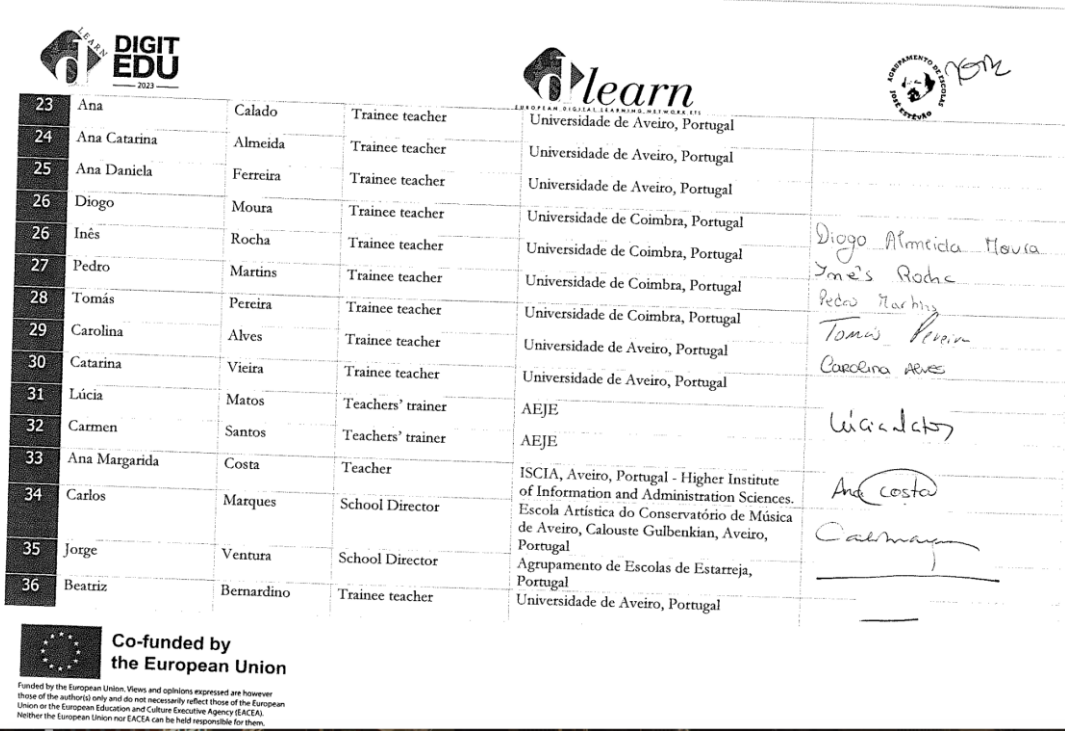 LEARN
DIGIT
EDU
2023
dlearn
EUROPEAN DIGITAL LEARNING NETWORK ETS
AGRUPAMENTO DE ESCOLAS
JOSÉ ESTÊVÃO
23 Ana Calado Trainee teacher Universidade de Aveiro, Portugal
24 Ana Catarina Almeida Trainee teacher Universidade de Aveiro, Portugal
25 Ana Daniela Ferreira Trainee teacher Universidade de Aveiro, Portugal
26 Diogo Moura Trainee teacher Universidade de Coimbra, Portugal Diogo Almeida Moura
26 Inês Rocha Trainee teacher Universidade de Coimbra, Portugal Inês Rocha
27 Pedro Martins Trainee teacher Universidade de Coimbra, Portugal Pedro Martins
28 Tomás Pereira Trainee teacher Universidade de Coimbra, Portugal Tomás Pereira
29 Carolina Alves Trainee teacher Universidade de Aveiro, Portugal Carolina Alves
30 Catarina Vieira Trainee teacher Universidade de Aveiro, Portugal
31 Lúcia Matos Teachers' trainer AEJE Lúcia Matos
32 Carmen Santos Teachers' trainer AEJE
33 Ana Margarida Costa Teacher ISCIA, Aveiro, Portugal - Higher Institute
of Information and Administration Sciences. Ana Costa
34 Carlos Marques School Director Escola Artística do Conservatório de Música
de Aveiro, Calouste Gulbenkian, Aveiro,
Portugal
35 Jorge Ventura School Director Agrupamento de Escolas de Estarreja,
Portugal
36 Beatriz Bernardino Trainee teacher Universidade de Aveiro, Portugal
Co-funded by
the European Union
Funded by the European Union. Views and opinions expressed are however
those of the author(s) only and do not necessarily reflect those of the European
Union or the European Education and Culture Executive Agency (EACEA).
Neither the European Union nor EACEA can be held responsible for them.